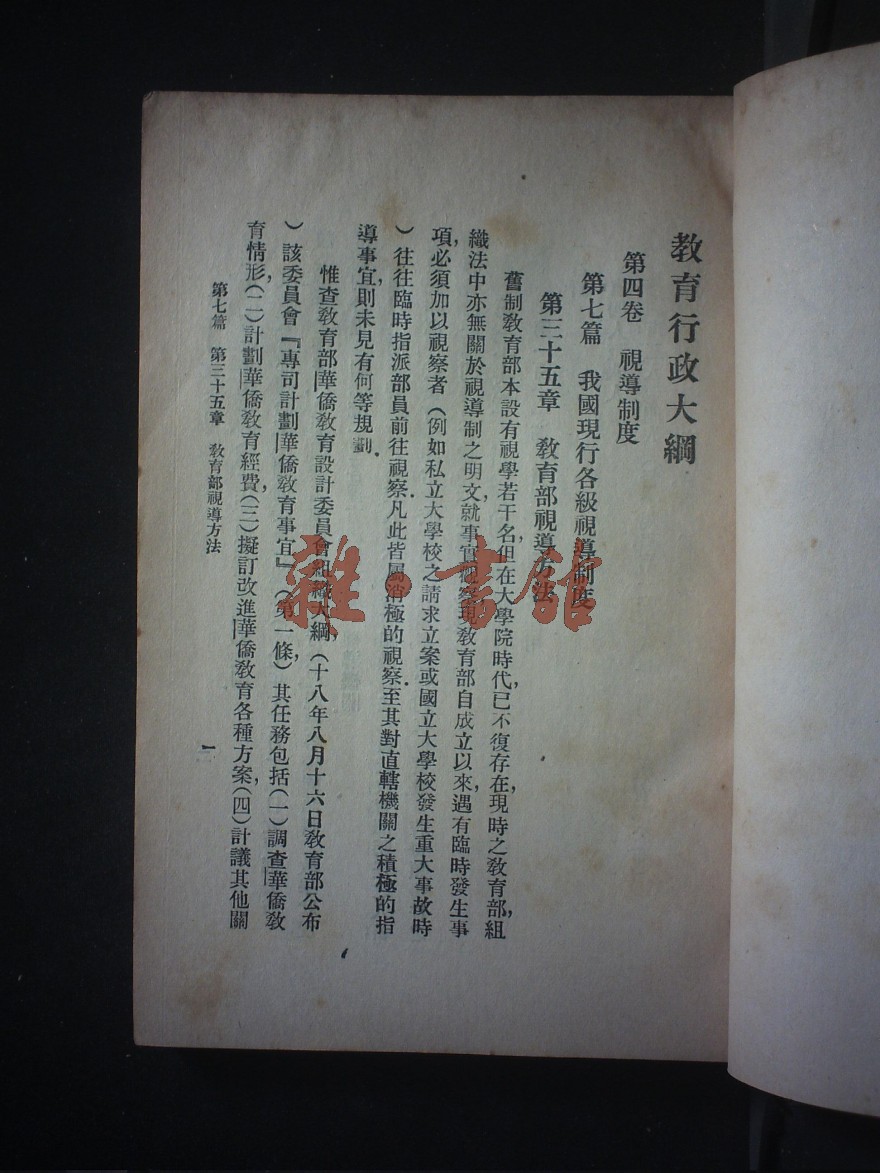 教育行政大綱
第四卷　視導制度
第七篇　我國現行各級視導制度
第三十五章　敎育部視導方法
舊制敎育部本設有視學若干名，但在大學院時代，已不復存在，現時之敎育部，組
織法中亦無關於視導制之明文，就事實觀察，現敎育部自成立以來，遇有臨時發生事
項，必須加以視察者（例如私立大學校之請求立案或國立大學校發生重大事故時
）往往臨時指派部員前往視察．凡此皆屬消極的視察．至其對直轄機關之積極的指
導事宜，則未見有何等規劃．
惟查敎育部華僑敎育設計委員會組織大綱，（十八年八月十六日敎育部公布
）該委員會『專司計劃華僑敎育事宜』（第一條）其任務包括（一）調查華僑敎
育情形，（二）計劃華僑敎育經費，（三）擬訂改進華僑敎育各種方案，（四）計議其他關
第七篇　第三十五章　敎育部視導方法
一
雜·書館